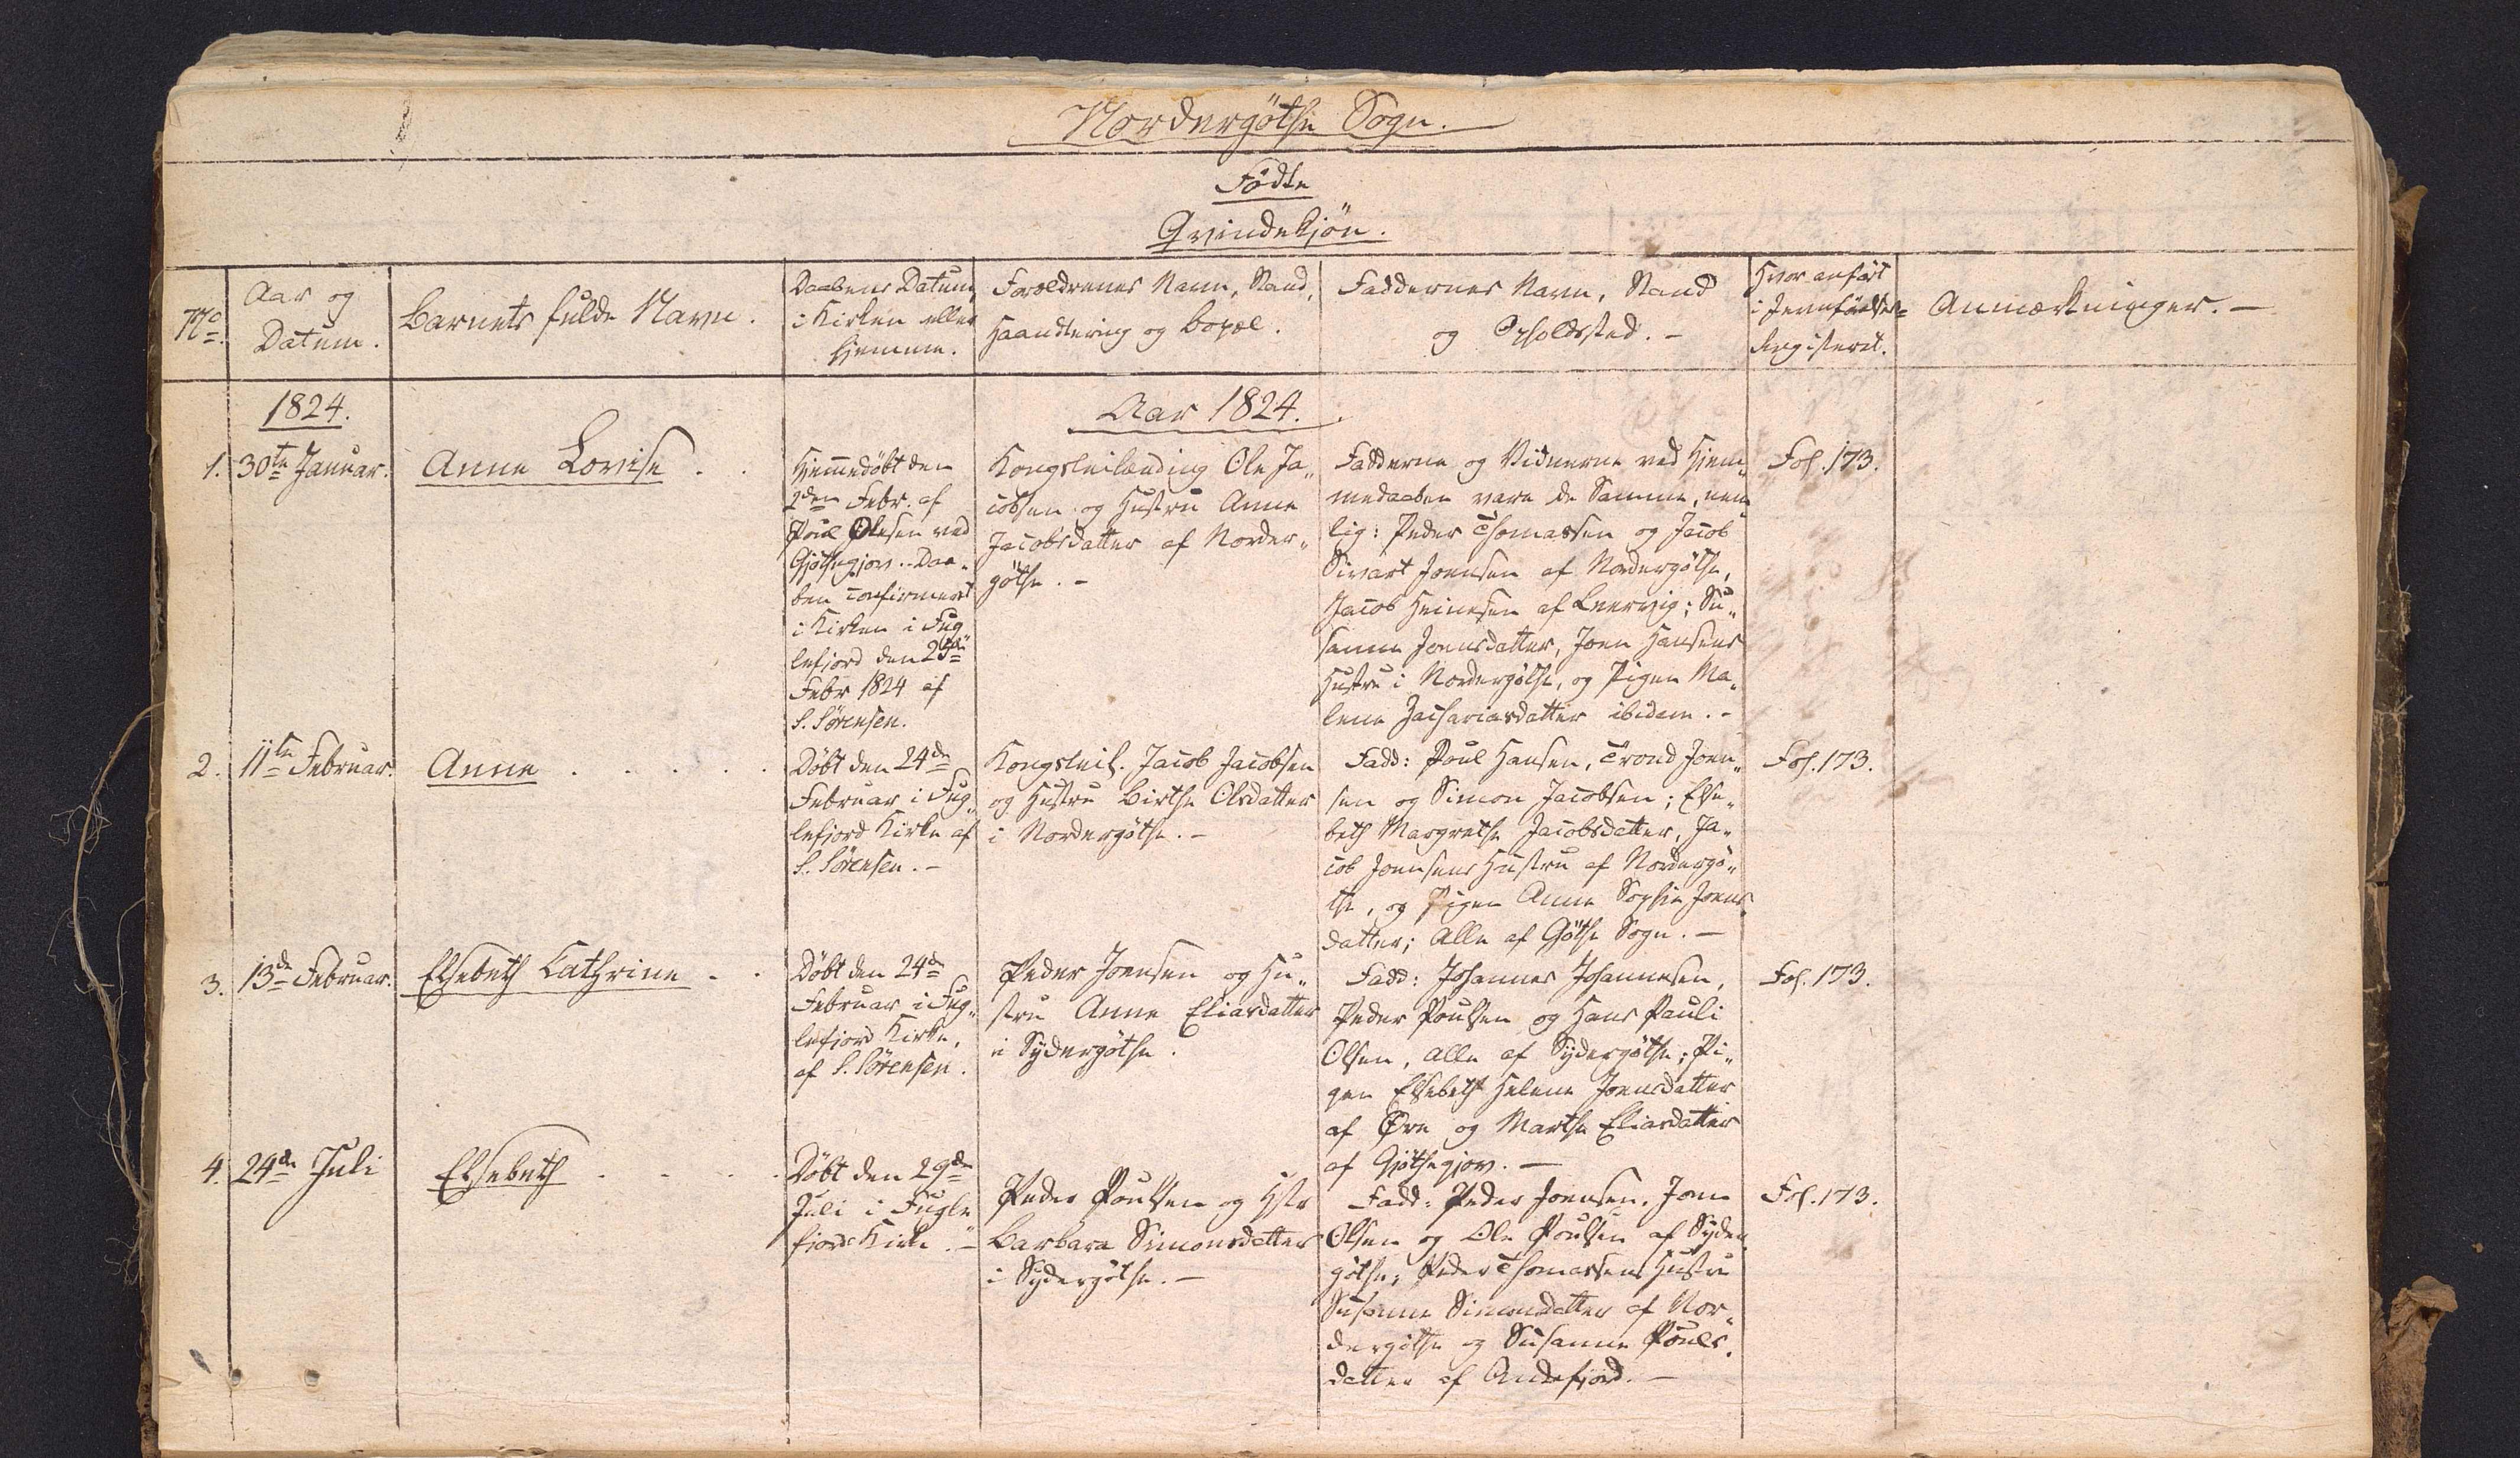 Nordergøthe Sogn.
Födte
Qvindekjön.
No.
Aar og
Datum.
Barnets fulde Navn.
Daabens Datum,
i Kirken eller
hjemme.
Forældrenes Navn, Stand,
Haandtering og Bopæl.
Faddernes Navn, Stand
og Opholdssted. -
Hvor anført
i Jevnførelses-
Registeret.
Anmærkninger. -
1824.
Aar 1824.
1.
30te Januar.
Anne Lovise . .
Hjemmedöbt den
2den Febr. af
Poul Olesen ved
Gjøthegjov. Daa-
ben confirmeret
i Kirken i Fug
lefjord den
Febr 1824 af
S. Sörensen.
Kongsleilænding Ole Ja„
cobsen og Hustru Anne
Jacobsdatter af Norder„
göthe. -
Fadderne og Vidnerne ved Hjem„
medaaben vare de Samme, nem„
lig: Peder Thomassen og Jacob
Sivart Joensen af Nordergöthe,
Jacob Heinesen af Leervig; Su„
sanne Joensdatter, Joen Hansens
Hustru i Nordergöthe, og Pigen Ma„
lene Zachariasdatter ibidem. -
Fol. 173.
2.
11te Februar.
Anne . . . . .
Döbt den 24de
Februar i Fug„
lefjord Kirke af
S. Sörensen. -
Kongsleil. Jacob Jacobsen
og Hustru Birthe Olsdatter
i Nordergöthe. -
Fadd: Poul Hansen, Trond Joen„
sen og Simon Jacobsen; Else„
beth Margrethe Jacobsdatter, Ja„
cob Joensens Hustru af Nordergö„
the, og Pigen Anne Sophie Joens„
datter; Alle af Göthe Sogn. -
Fol. 173.
3.
13de Februar.
Elsebeth Cathrine - .
Döbt den 24de
Februar i Fug„
lefjord Kirke,
af S. Sörensen.
Peder Joensen og Hu„
stru Anne Eliasdatter
i Sydergöthe.
Fadd: Johannes Johannesen,
Peder Poulsen og Hans Pauli
Olsen, alle af Sydergöthe; Pi„
gen Elsebeth Helene Joensdatter
af Öre og Marthe Eliasdatter
af Gjøthegjov. -
Fol. 173.
4.
24de Juli
Elsebeth . . . .
Döbt den 29de
Juli i Fugle
fjord Kirke. -
Peder Poulsen og Hstr
Barbara Simonsdatter
i Sydergöthe. -
Fadd: Peder Joensen, Joen
Olsen og Ole Poulsen af Syder„
göthe; Peder Thomassens Hustru
Susanne Simonsdatter af Nor„
dergöthe og Susanne Pouls„
datter af Andefjord. -
Fol. 173.